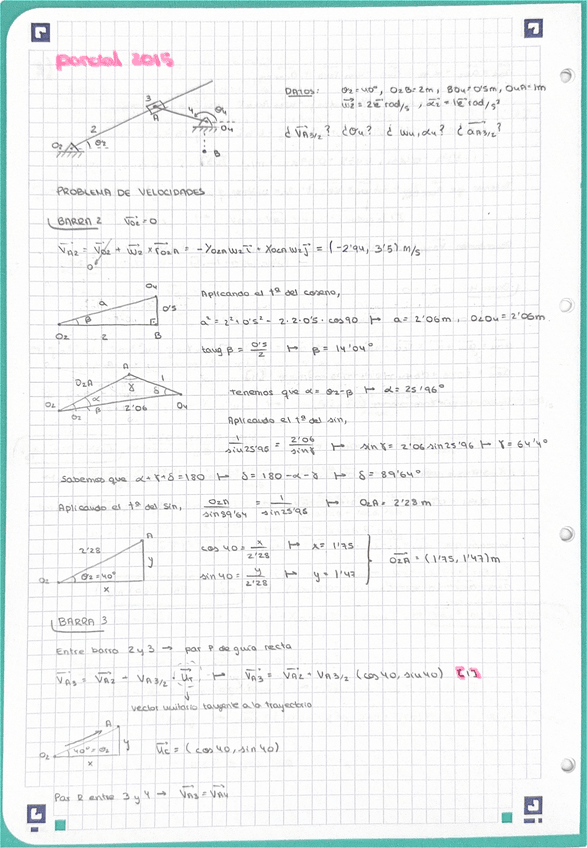 parcial 2015
DATOS: θ2=40°, O2B=2m, BO4=0'5m, O4A=1m
ω2 = 2k rad/s, α2 = 1k rad/s²
3
4
θ4
A
O4
2
O2
θ2
B
¿ VA3/2? ¿θ4? ¿ω4, α4? ¿ aA3/2?
PROBLEMA DE VELOCIDADES
BARRA 2 VO2 = 0
VA2 = VO2 + ω2 × rO2A = -YO2A ω2 i + XO2A ω2 j = (-2'94, 3'5) m/s
0
O4
a
0'5
β
O2 2 B
Aplicando el tª del coseno,
a² = 2² + 0'5² - 2·2·0'5·cos90 ↦ a = 2'06m, O2O4 = 2'06m
tang β = 0'5/2 ↦ β = 14'04°
A
O2A γ 1
α δ
β
O2 θ2 2'06 O4
Tenemos que α = θ2-β ↦ α = 25'96°
Aplicando el tª del sin,
1/sin25'96 = 2'06/sinγ ↦ sinγ = 2'06·sin25'96 ↦ γ = 64'4°
Sabemos que α+γ+δ=180 ↦ δ = 180-α-γ ↦ δ = 89'64°
Aplicando el tª del sin, O2A/sin89'64 = 1/sin25'96 ↦ O2A = 2'28 m
A
2'28
y
O2 θ2=40°
x
cos 40 = x/2'28 ↦ x = 1'75
sin 40 = y/2'28 ↦ y = 1'47
O2A = (1'75, 1'47)m
BARRA 3
Entre barra 2 y 3 → par P de guía recta
VA3 = VA2 + VA3/2 · uT ↦ VA3 = VA2 + VA3/2 (cos 40, sin 40) [1]
vector unitario tangente a la trayectoria
A
y
O2 40°=θ2
x
uT = (cos 40, sin 40)
Par R entre 3 y 4 → VA3 = VA4